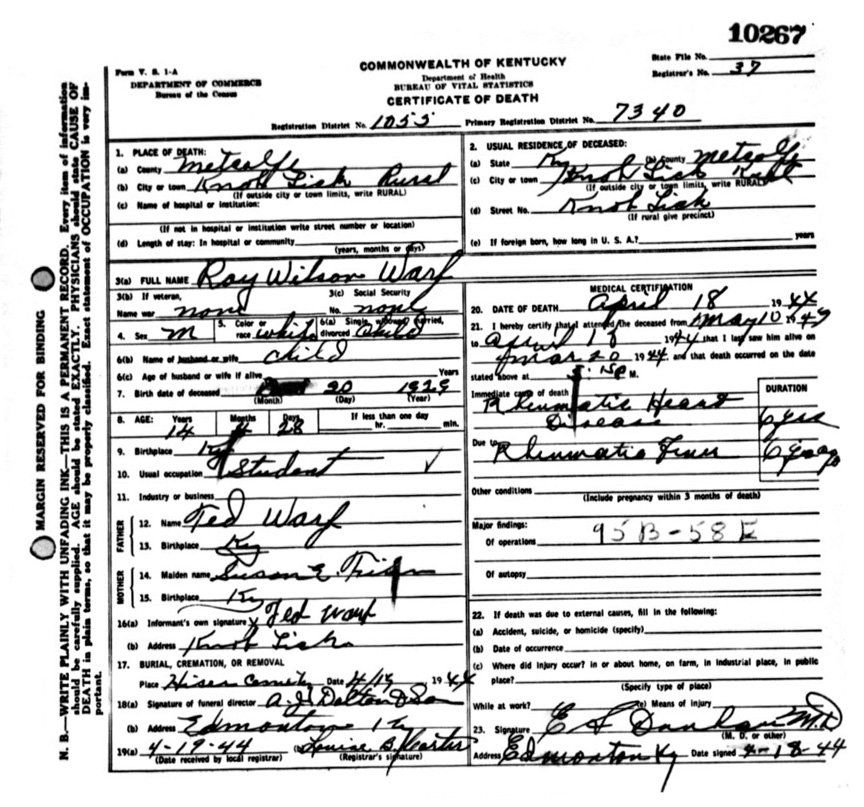 10267
Form V. S. 1-A
DEPARTMENT OF COMMERCE
Bureau of the Census
COMMONWEALTH OF KENTUCKY
Department of Health
BUREAU OF VITAL STATISTICS
CERTIFICATE OF DEATH
State File No.
Registrar's No. 37
Registration District No. 1055 Primary Registration District No. 7340
MARGIN RESERVED FOR BINDING
N. B.—WRITE PLAINLY WITH UNFADING INK—THIS IS A PERMANENT RECORD. Every item of information
should be carefully supplied. AGE should be stated EXACTLY. PHYSICIANS should state CAUSE OF
DEATH in plain terms, so that it may be properly classified. Exact statement of OCCUPATION is very im-
portant.
1. PLACE OF DEATH:
(a) County Metcalfe
(b) City or town Knob Lick Rural
(If outside city or town limits, write RURAL)
(c) Name of hospital or institution:
(If not in hospital or institution write street number or location)
(d) Length of stay: In hospital or community
(years, months or days)
2. USUAL RESIDENCE OF DECEASED:
(a) State Ky (b) County Metcalfe
(c) City or town Knob Lick Rural
(If outside city or town limits, write RURAL)
(d) Street No. Knob Lick
(If rural give precinct)
(e) If foreign born, how long in U. S. A.? years
3(a) FULL NAME Roy Wilson Warf
3(b) If veteran,
Name war none
3(c) Social Security
No. none
4. Sex M
5. Color or
race white
6(a) Single, widowed, married,
divorced child
6(b) Name of husband or wife child
6(c) Age of husband or wife if alive Years
7. Birth date of deceased 20 1929
(Month) (Day) (Year)
8. AGE: Years Months Days If less than one day
14 4 28 hr. min.
9. Birthplace Ky
10. Usual occupation Student ✓
11. Industry or business
FATHER
12. Name Ted Warf
13. Birthplace Ky
MOTHER
14. Maiden name Susan E.
15. Birthplace Ky
16(a) Informant's own signature x Ted Warf
(b) Address Knob Lick
17. BURIAL, CREMATION, OR REMOVAL
Place Hiser Cemetery Date 4/19 1944
18(a) Signature of funeral director A. J. Dalton & Son
(b) Address Edmonton Ky
19(a) 4-19-44 (b) Louise B.
(Date received by local registrar) (Registrar's signature)
MEDICAL CERTIFICATION
20. DATE OF DEATH April 18 1944
21. I hereby certify that I attended the deceased from May 10 19
to April 18 1944 that I last saw him alive on
Mar 20 1944, and that death occurred on the date
stated above at M.
Immediate cause of death DURATION
Rheumatic Heart
Disease 6 yrs
Due to Rheumatic Fever 6 yrs ago
Other conditions
(Include pregnancy within 3 months of death)
Major findings:
Of operations 95B-58E
Of autopsy
22. If death was due to external causes, fill in the following:
(a) Accident, suicide, or homicide (specify)
(b) Date of occurrence
(c) Where did injury occur? in or about home, on farm, in industrial place, in public
place?
(Specify type of place)
While at work? (e) Means of injury
23. Signature E S Dunham M.D.
(M. D. or other)
Address Edmonton Ky Date signed 4-18-44